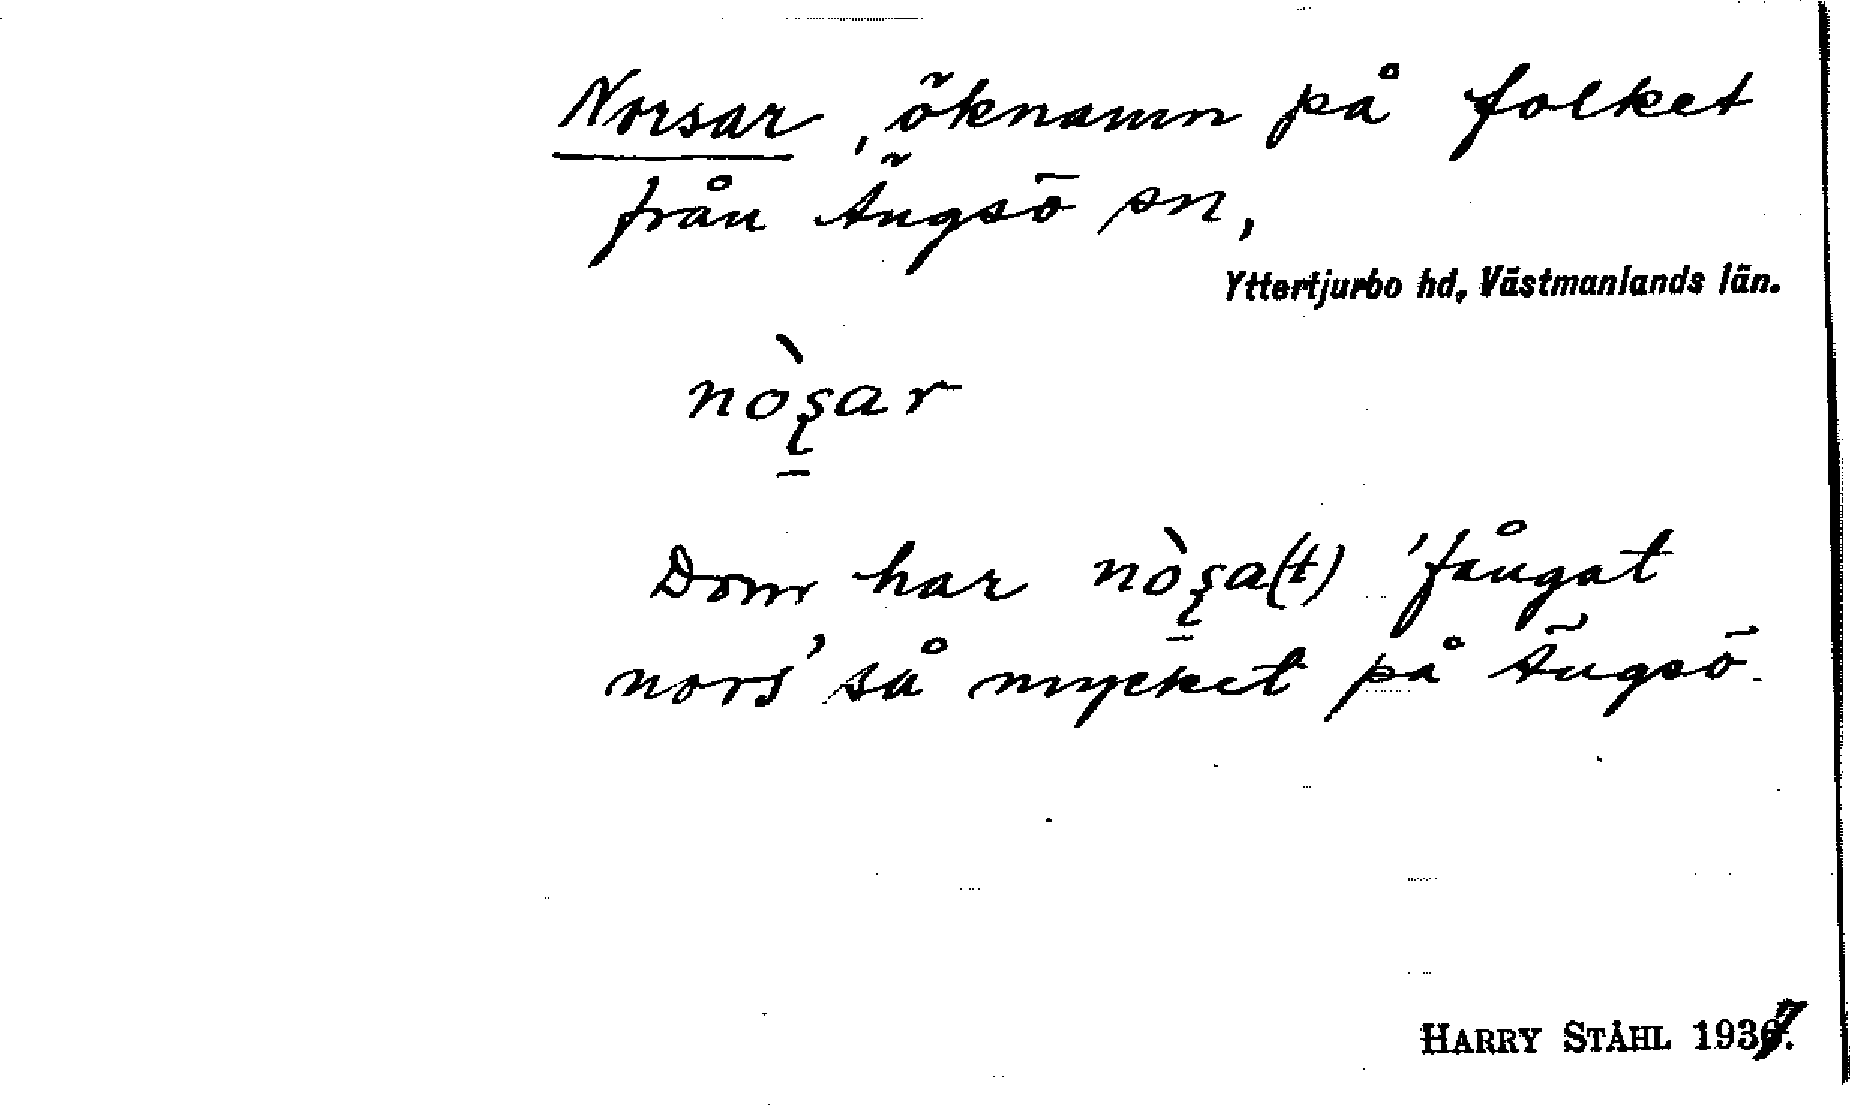 Norsar, öknamn på folket
från Ängsö sn,
Yttertjurbo hd, Västmanlands län.
nòʂ̱ar
Dom har nòʂ̱a(t) 'fångat
nors' så mycket på Ängsö.
HARRY STÅHL 1937.